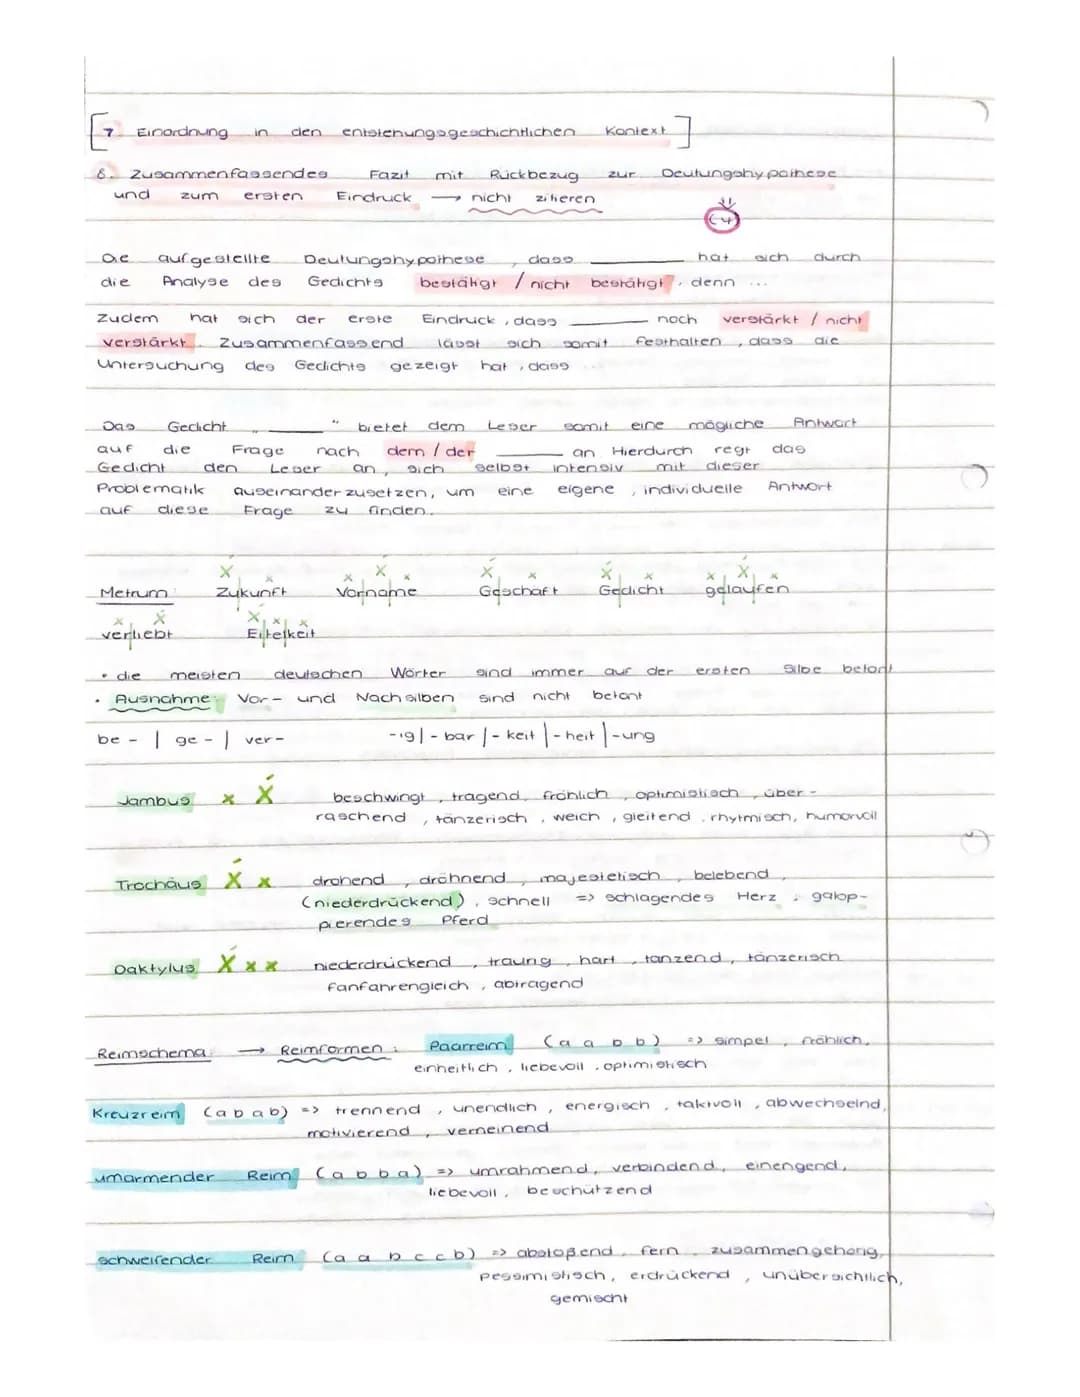 [7 Einordnung in den entstehungsgeschichtlichen Kontext]
8. Zusammenfassendes Fazit mit Rückbezug zur Deutungshypothese
und zum ersten Eindruck → nicht zitieren
Die aufgestellte Deutungshypothese, dass ______ hat sich durch
die Analyse des Gedichts bestätigt / nicht bestätigt, denn ...
Zudem hat sich der erste Eindruck, dass ______ noch verstärkt / nicht
verstärkt. Zusammenfassend lässt sich somit festhalten, dass die
Untersuchung des Gedichts gezeigt hat, dass ...
Das Gedicht „______“ bietet dem Leser somit eine mögliche Antwort
auf die Frage nach dem / der ______ an. Hierdurch regt das
Gedicht den Leser an, sich selbst intensiv mit dieser
Problematik auseinanderzusetzen, um eine eigene, individuelle Antwort
auf diese Frage zu finden.
x́ x x x́ x x́ x x́ x x x́ x
Metrum: Zukunft Vorname Geschäft Gedicht gelaufen
x x́ x́ x x
verliebt Eitelkeit
• die meisten deutschen Wörter sind immer auf der ersten Silbe betont
• Ausnahme: Vor- und Nachsilben sind nicht betont
be- | ge- | ver- -ig | -bar | -keit | -heit | -ung
Jambus x X́ beschwingt, tragend, fröhlich, optimistisch, über-
raschend, tänzerisch, weich, gleitend, rhytmisch, humorvoll
Trochäus X́ x drohend, dröhnend, majestetisch, belebend,
(niederdrückend), schnell => schlagendes Herz, galop-
pierendes Pferd
Daktylus X́ x x niederdrückend, traurig, hart, tanzend, tänzerisch
fanfahrengleich, abtragend
Reimschema: → Reimformen: Paarreim (a a b b) => simpel, fröhlich,
einheitlich, liebevoll, optimistisch
Kreuzreim (a b a b) => trennend, unendlich, energisch, taktvoll, abwechselnd,
motivierend, verneinend
umarmender Reim (a b b a) => umrahmend, verbindend, einengend,
liebevoll, beschützend
schweifender Reim (a a b c c b) => abstoßend, fern, zusammengehörig,
pessimistisch, erdrückend, unübersichtlich,
gemischt